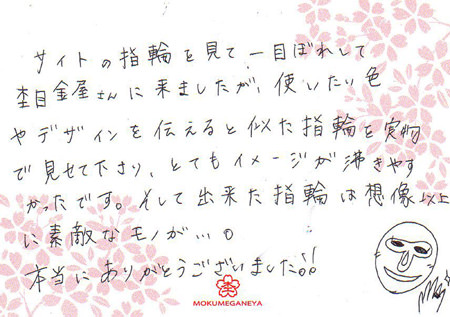 サイトの指輪を見て一目ぼれして
杢目金屋さんに来ましたが、使いたい色
やデザインを伝えると似た指輪を実物
で見せて下さり、とてもイメージが沸きやす
かったです。そして出来た指輪は想像以上
に素敵なモノが…。
本当にありがとうございました!!
MOKUMEGANEYA